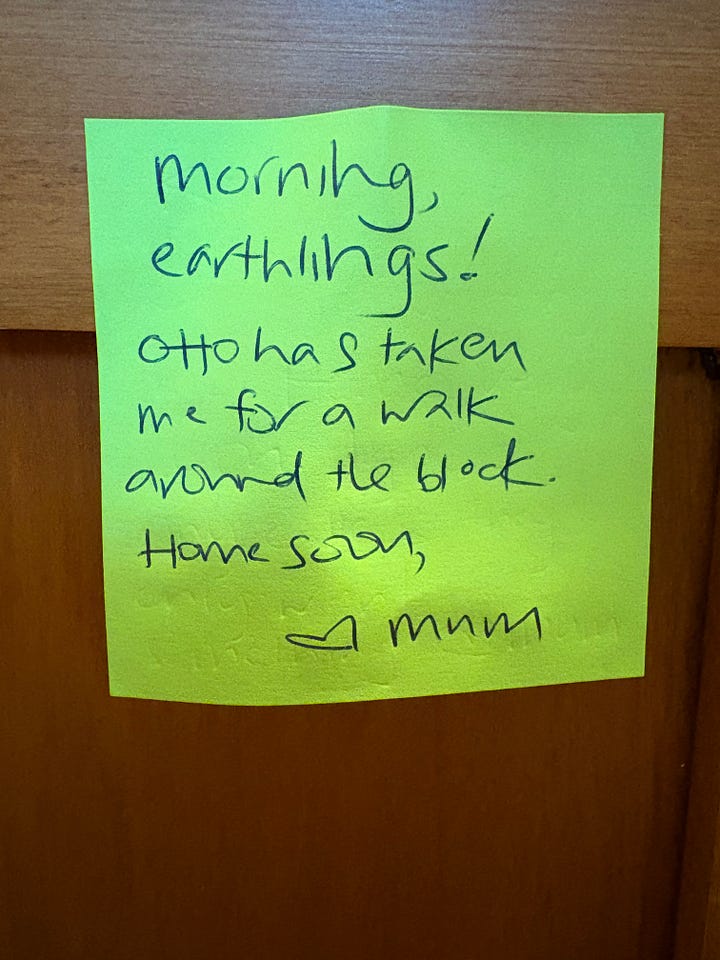 morning,
earthlings!
Otto has taken
me for a walk
around the block.
Home soon,
♡ mum